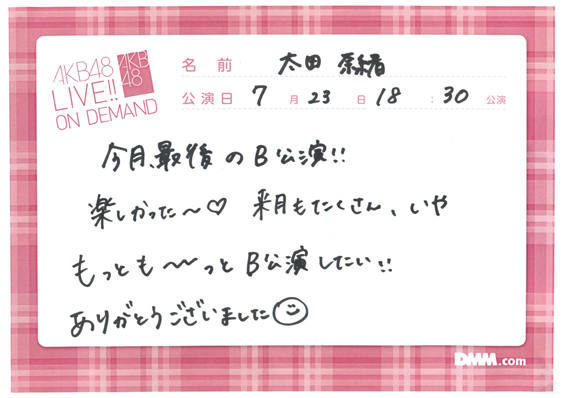 AKB48
LIVE!!
ON DEMAND
AKB
48
名前 太田 奈緒
公演日 7月23日18:30公演
今月、最後のB公演!!
楽しかった〜♡ 来月もたくさん、いや
もっとも〜〜っとB公演したい!!
ありがとうございました
DMM.com